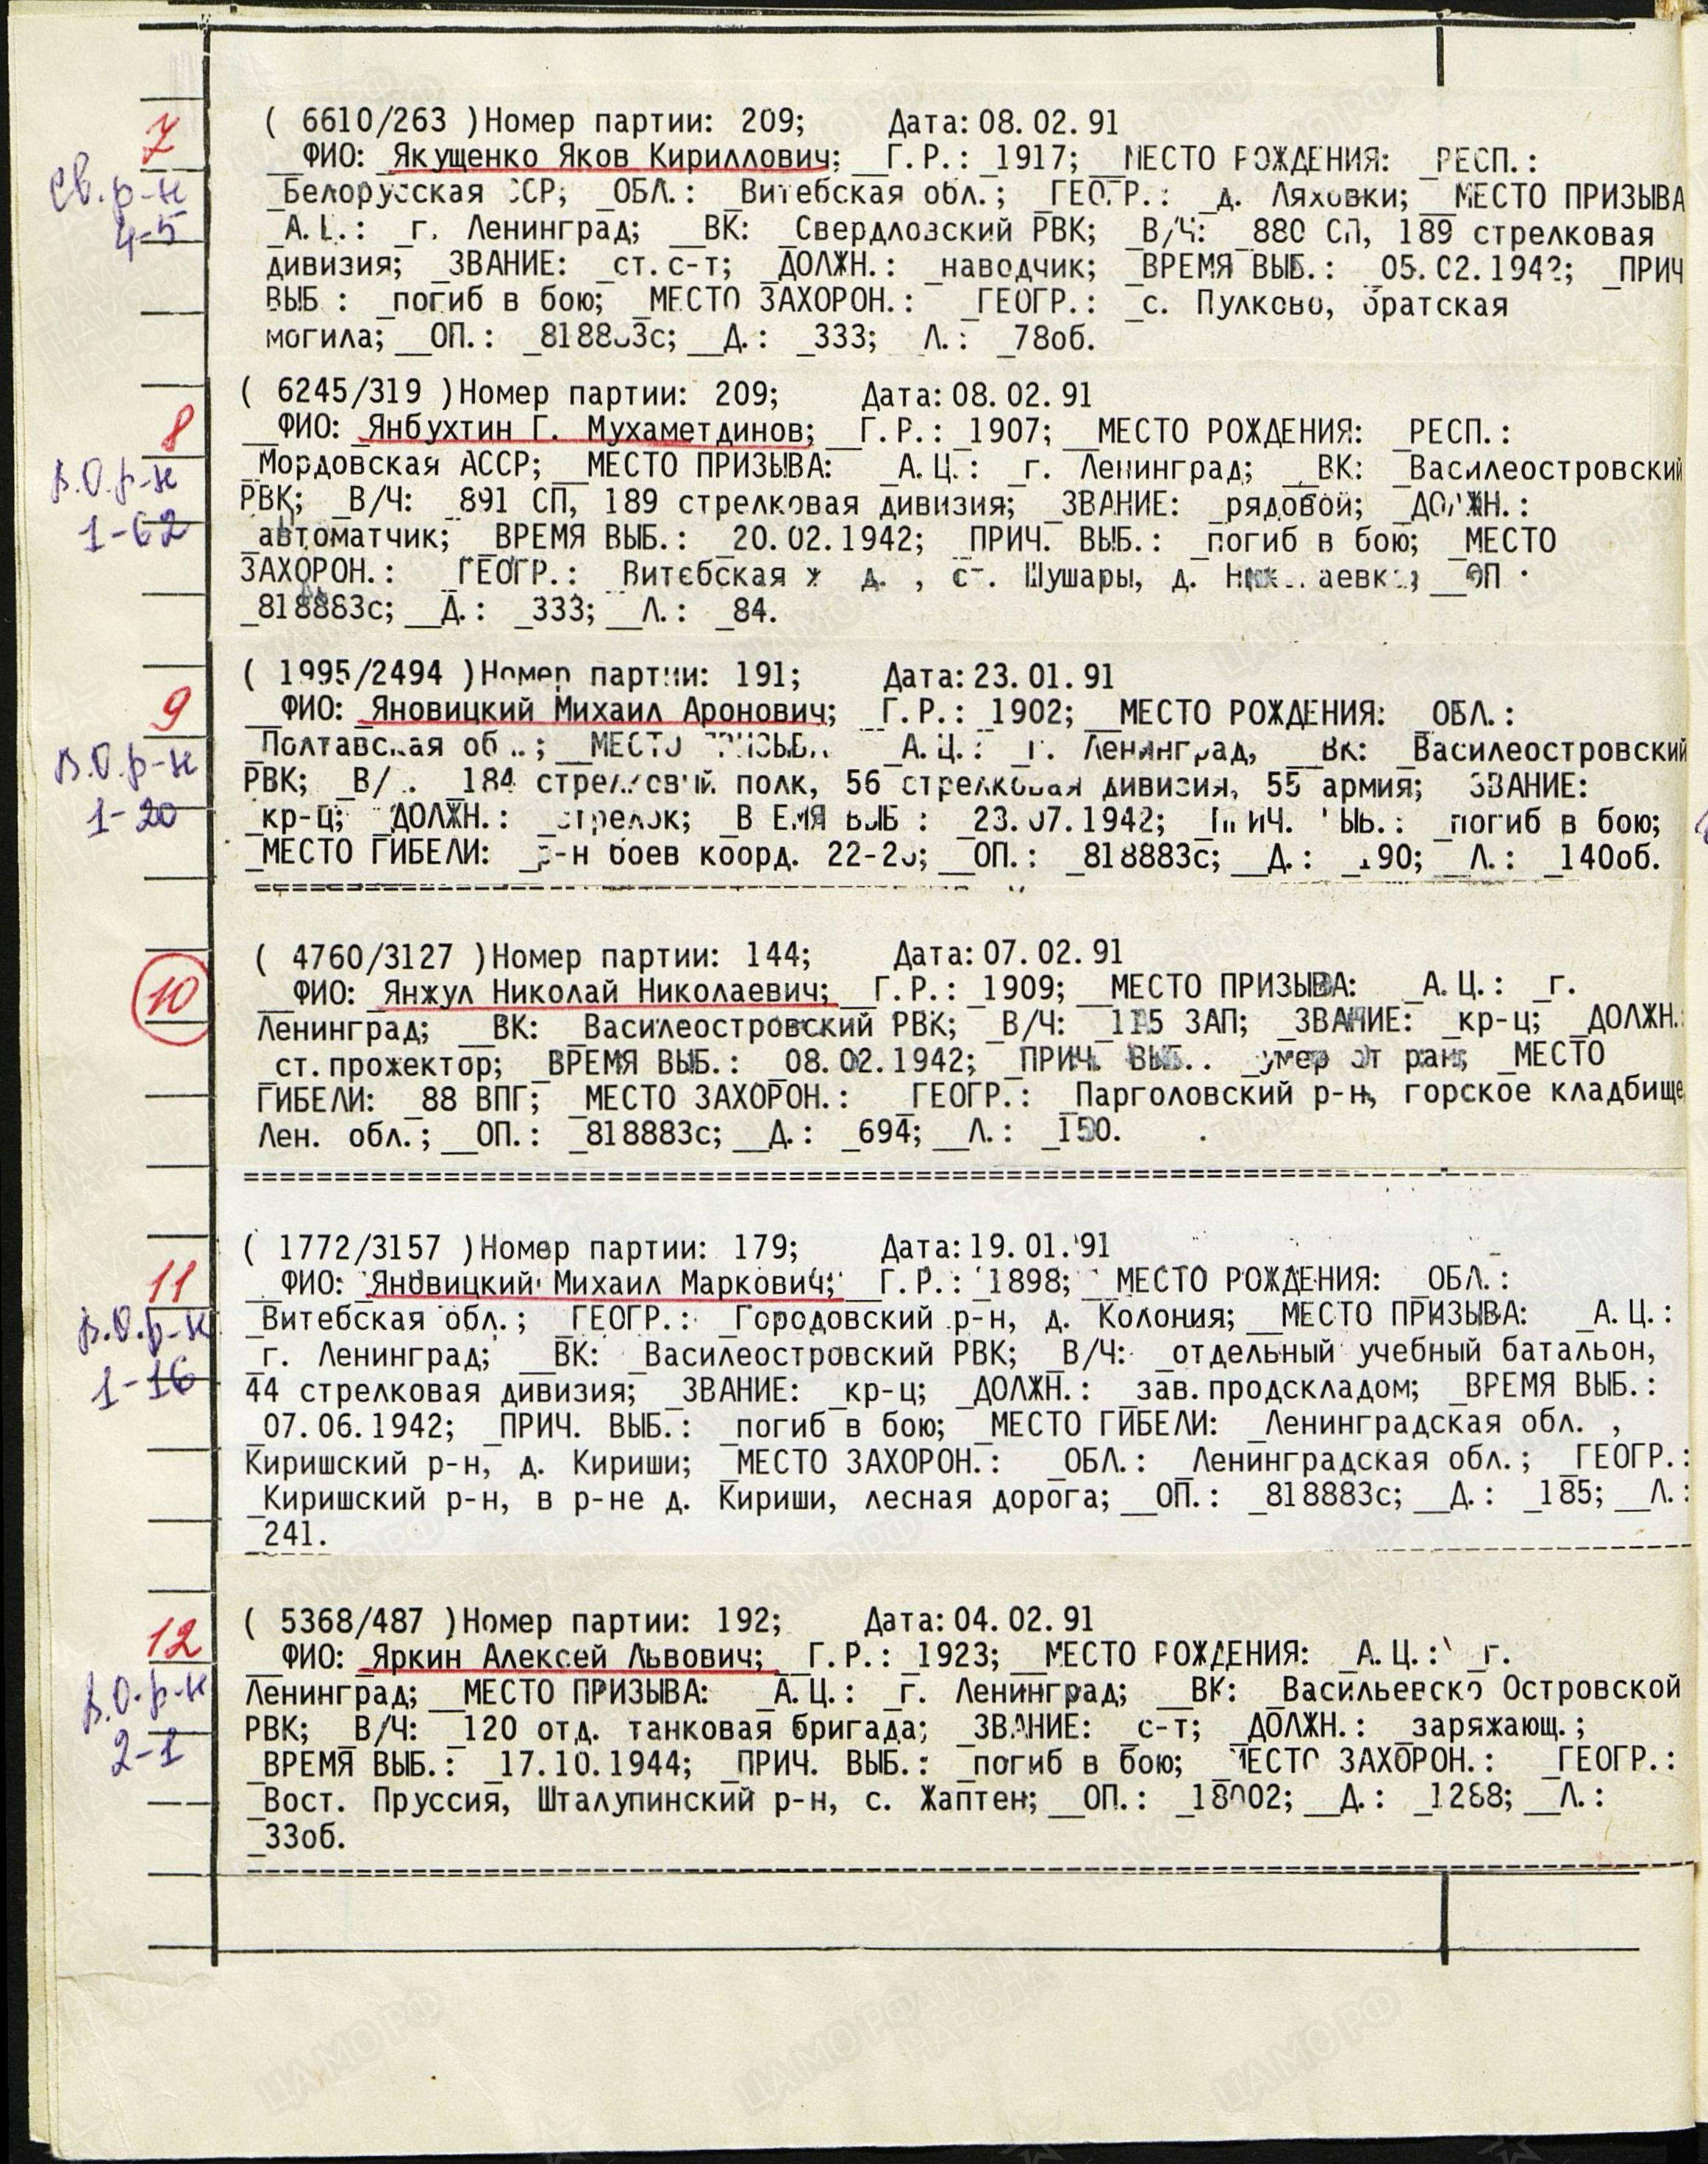 7
( 6610/263 )Номер партии: 209; Дата: 08.02.91
__ФИО: _Якущенко Яков Кириллович; __Г.Р.: _1917; __МЕСТО РОЖДЕНИЯ: _РЕСП.:
Св. р-н
_Белорусская ССР; _ОБЛ.: _Витебская обл.; _ГЕОГР.: _д. Ляховки; __МЕСТО ПРИЗЫВА
4-5
_А.Ц.: _г. Ленинград; __ВК: _Свердловский РВК; _В/Ч: _880 СП, 189 стрелковая
дивизия; _ЗВАНИЕ: _ст.с-т; _ДОЛЖН.: _наводчик; _ВРЕМЯ ВЫБ.: _05.02.1942; _ПРИЧ
ВЫБ : _погиб в бою; _МЕСТО ЗАХОРОН.: _ГЕОГР.: _с. Пулково, братская
могила; __ОП.: _818883с; __Д.: _333; Л.: _78об.
8
( 6245/319 )Номер партии: 209; Дата: 08.02.91
__ФИО: _Янбухтин Г. Мухаметдинов; __Г.Р.: _1907; __МЕСТО РОЖДЕНИЯ: _РЕСП.:
В.О.р-н
_Мордовская АССР; __МЕСТО ПРИЗЫВА: _А.Ц.: _г. Ленинград; __ВК: _Василеостровский
1-62
РВК; _В/Ч: _891 СП, 189 стрелковая дивизия; _ЗВАНИЕ: _рядовой; _ДОЛЖН.:
_автоматчик; _ВРЕМЯ ВЫБ.: _20.02.1942; _ПРИЧ. ВЫБ.: _погиб в бою; _МЕСТО
ЗАХОРОН.: _ГЕОГР.: _Витебская ж д. , ст. Шушары, д. __ОП
_818883с; __Д.: _333; __Л.: _84.
9
( 1995/2494 )Номер партии: 191; Дата: 23.01.91
__ФИО: _Яновицкий Михаил Аронович; __Г.Р.: _1902; __МЕСТО РОЖДЕНИЯ: _ОБЛ.:
В.О.р-н
_Полтавская обл.; __МЕСТО ПРИЗЫВА _А.Ц.: _г. Ленинград, __ВК: _Василеостровский
1-20
РВК; _В/ . _184 стрелковый полк, 56 стрелковая дивизия, 55 армия; ЗВАНИЕ:
_кр-ц; _ДОЛЖН.: _стрелок; _ВРЕМЯ ВЫБ : _23.07.1942; _ПРИЧ. ВЫБ.: _погиб в бою;
_МЕСТО ГИБЕЛИ: _р-н боев коорд. __ОП.: _818883с; __Д.: _190; __Л.: _140об.
10
( 4760/3127 )Номер партии: 144; Дата: 07.02.91
__ФИО: _Янжул Николай Николаевич; __Г.Р.: _1909; __МЕСТО ПРИЗЫВА: _А.Ц.: _г.
Ленинград; __ВК: _Василеостровский РВК; _В/Ч: _115 ЗАП; _ЗВАНИЕ: _кр-ц; _ДОЛЖН.:
_ст.прожектор; _ВРЕМЯ ВЫБ.: _08.02.1942; _ПРИЧ. ВЫБ.. _умер от ран; _МЕСТО
ГИБЕЛИ: _88 ВПГ; _МЕСТО ЗАХОРОН.: _ГЕОГР.: _Парголовский р-н, горское кладбище
Лен. обл.; __ОП.: _818883с; __Д.: _694; __Л.: _150.
11
( 1772/3157 )Номер партии: 179; Дата: 19.01.91
__ФИО: _Яновицкий Михаил Маркович; __Г.Р.: _1898; __МЕСТО РОЖДЕНИЯ: _ОБЛ.:
В.О.р-н
_Витебская обл.; _ГЕОГР.: _Городовский р-н, д. Колония; __МЕСТО ПРИЗЫВА: _А.Ц.:
1-16
_г. Ленинград; __ВК: _Василеостровский РВК; _В/Ч: _отдельный учебный батальон,
44 стрелковая дивизия; _ЗВАНИЕ: _кр-ц; _ДОЛЖН.: _зав.продскладом; _ВРЕМЯ ВЫБ.:
_07.06.1942; _ПРИЧ. ВЫБ.: _погиб в бою; _МЕСТО ГИБЕЛИ: _Ленинградская обл. ,
Киришский р-н, д. Кириши; _МЕСТО ЗАХОРОН.: _ОБЛ.: _Ленинградская обл.; _ГЕОГР.:
_Киришский р-н, в р-не д. Кириши, лесная дорога; __ОП.: _818883с; __Д.: _185; __Л.:
_241.
12
( 5368/487 )Номер партии: 192; Дата: 04.02.91
__ФИО: _Яркин Алексей Львович; __Г.Р.: _1923; __МЕСТО РОЖДЕНИЯ: _А.Ц.: _г.
В.О.р-н
Ленинград; __МЕСТО ПРИЗЫВА: _А.Ц.: _г. Ленинград; __ВК: _Васильевско Островской
2-1
РВК; _В/Ч: _120 отд. танковая бригада; _ЗВАНИЕ: _с-т; _ДОЛЖН.: _заряжающ.;
_ВРЕМЯ ВЫБ.: _17.10.1944; _ПРИЧ. ВЫБ.: _погиб в бою; _МЕСТО ЗАХОРОН.: _ГЕОГР.:
_Вост. Пруссия, Шталупинский р-н, с. Жаптен; __ОП.: _18002; __Д.: _1268; __Л.:
_33об.